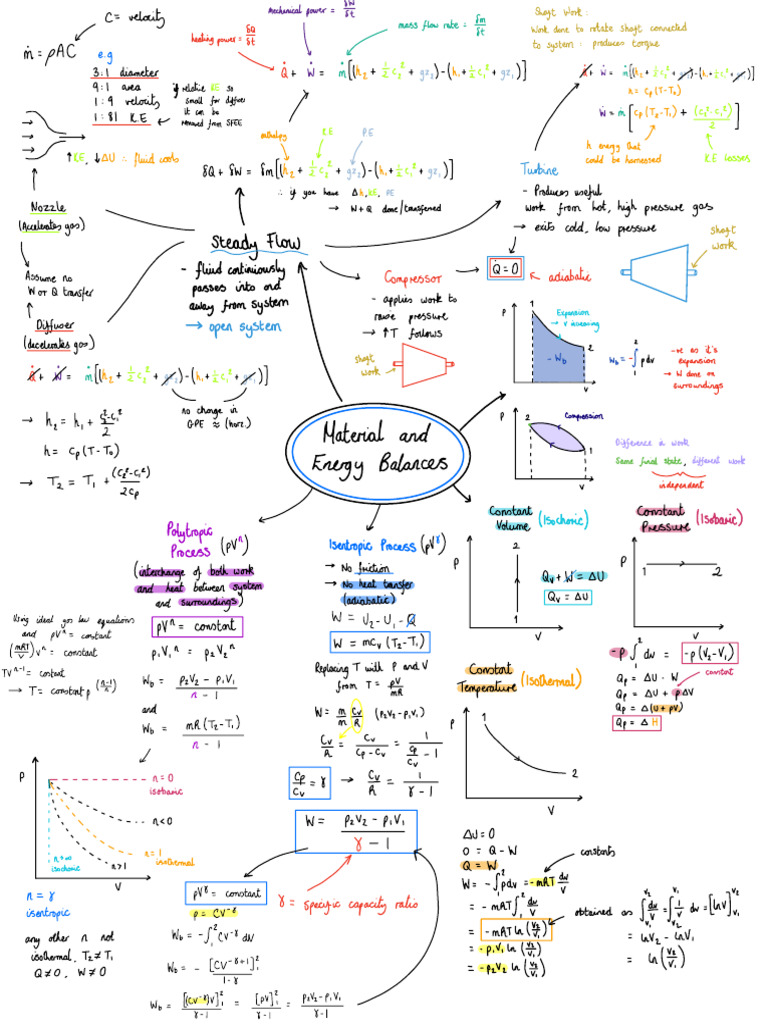 C = velocity
ṁ = ρAC
e.g
3:1 diameter
9:1 area
1:9 velocity
1:81 K.E
if relative KE so
small for diffuser
it can be
removed from SFEE
↑K.E, ↓ΔU ∴ fluid cools
Nozzle
(Accelerates gas)
Assume no
W or Q transfer
Diffuser
(decelerates gas)
Q̇ + Ẇ = ṁ[(h₂ + ½c₂² + gz₂) - (h₁ + ½c₁² + gz₁)]
no change in
GPE ≈ (horz.)
→ h₂ = h₁ + (c₂² - c₁²)/2
h = cp(T - T₀)
→ T₂ = T₁ + (c₂² - c₁²)/2cp
mechanical power = δW/δt
heating power = δQ/δt
mass flow rate = δm/δt
Q̇ + Ẇ = ṁ[(h₂ + ½c₂² + gz₂) - (h₁ + ½c₁² + gz₁)]
enthalpy
KE
PE
δQ + δW = δm[(h₂ + ½c₂² + gz₂) - (h₁ + ½c₁² + gz₁)]
∴ if you have Δh, KE, PE
→ W + Q done/transferred
Steady Flow
- fluid continuously
passes into and
away from system
→ open system
Shaft Work:
Work done to rotate shaft connected
to system: produces torque
Q̇ + Ẇ = ṁ[(h₂ + ½c₂² + gz₂) - (h₁ + ½c₁² + gz₁)]
h = cp(T - T₀)
Ẇ = ṁ[cp(T₂ - T₁) + (c₂² - c₁²)/2]
h energy that
could be harnessed
K.E losses
Turbine
- Produces useful
work from hot, high pressure gas
→ exits cold, low pressure
Shaft
work
Q = 0
adiabatic
Compressor
- applies work to
raise pressure
→ ↑T follows
Shaft
work
P
1
Expansion
→ V increasing
2
-W_b
V
W_b = -∫₁² p dv
-ve as it's
expansion
→ W done on
surroundings
P
2
Compression
1
V
Difference in work
Same final state, different work
independent
Material and
Energy Balances
Polytropic
Process (pVⁿ)
(interchange of both work
and heat between system
and surroundings)
pVⁿ = constant
p₁V₁ⁿ = p₂V₂ⁿ
W_b = (p₂V₂ - p₁V₁)/(n - 1)
and
W_b = mR(T₂ - T₁)/(n - 1)
Using ideal gas law equations
and pVⁿ = constant
(mRT/V)Vⁿ = constant
TVⁿ⁻¹ = constant
→ T = constant p^((n-1)/n)
P
n = 0
isobaric
n < 0
n = 1
isothermal
n > 1
n = ∞
isochoric
V
n = γ
isentropic
any other n not
isothermal, T₂ ≠ T₁
Q ≠ 0, W ≠ 0
Isentropic Process (pV^γ)
→ No friction
→ No heat transfer
(adiabatic)
W = U₂ - U₁ - Q
W = mCv(T₂ - T₁)
Replacing T with P and V
from T = pV/mR
W = (m/m)(Cv/R)(p₂V₂ - p₁V₁)
Cv/R = Cv/(Cp - Cv) = 1/(Cp/Cv - 1)
Cp/Cv = γ → Cv/R = 1/(γ - 1)
W = (p₂V₂ - p₁V₁)/(γ - 1)
γ = specific capacity ratio
pV^γ = constant
p = CV^-γ
W_b = -∫₁² CV^-γ dV
W_b = - [CV^(-γ+1)]₁²/(1 - γ)
W_b = [(CV^-γ)V]₁²/(γ - 1) = [pV]₁²/(γ - 1) = (p₂V₂ - p₁V₁)/(γ - 1)
Constant
Volume (Isochoric)
P
2
1
V
Qv + W = ΔU
Qv = ΔU
Constant
Pressure (Isobaric)
P
1
2
V
-p∫₁² dv = -p(V₂ - V₁)
constant
Qp = ΔU - W
Qp = ΔU + pΔV
Qp = Δ(U + pV)
Qp = ΔH
Constant
Temperature (Isothermal)
P
1
2
V
ΔU = 0
0 = Q - W
Q = W
W = -∫₁² p dv = -mRT dv/V
constants
= -mRT∫₁² dv/V
= -mRT ln(V₂/V₁)
= -p₁V₁ ln(V₂/V₁)
= -p₂V₂ ln(V₂/V₁)
obtained as ∫ dv/V = ∫ 1/V dv = [ln V]
= lnV₂ - lnV₁
= ln(V₂/V₁)